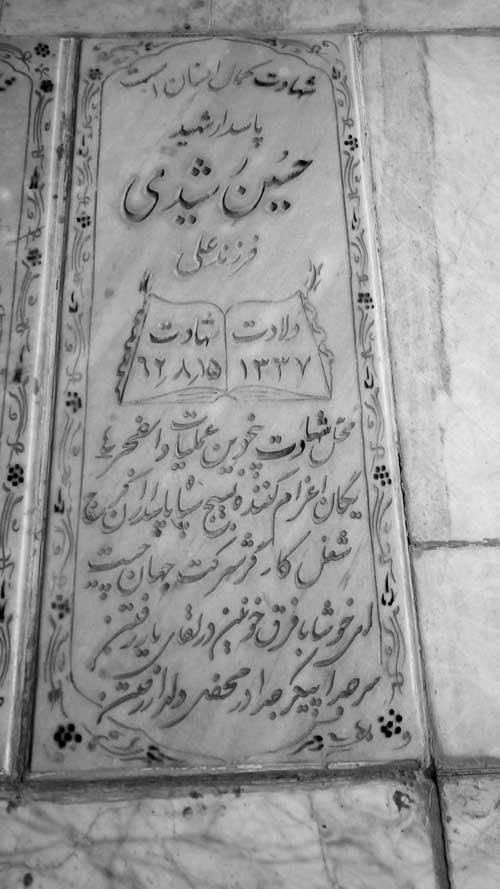 شهادت کمال انسان است
پاسدار شهید
حسین رشیدی
فرزند علی
ولادت ۱۳۳۷
شهادت ۶۲٫۸٫۱۵
محل شهادت پنجوین عملیات والفجر ۴
یگان اعزام کننده بسیج سپاه پاسداران کرج
شغل کارگر شرکت جهان چیت
ای خوشا با فرق خونین در لقای یار رفتن
سر جدا پیکر جدا در محفل دلدار رفتن